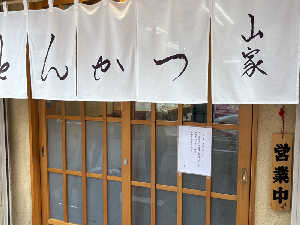 山家
とんかつ
営業中